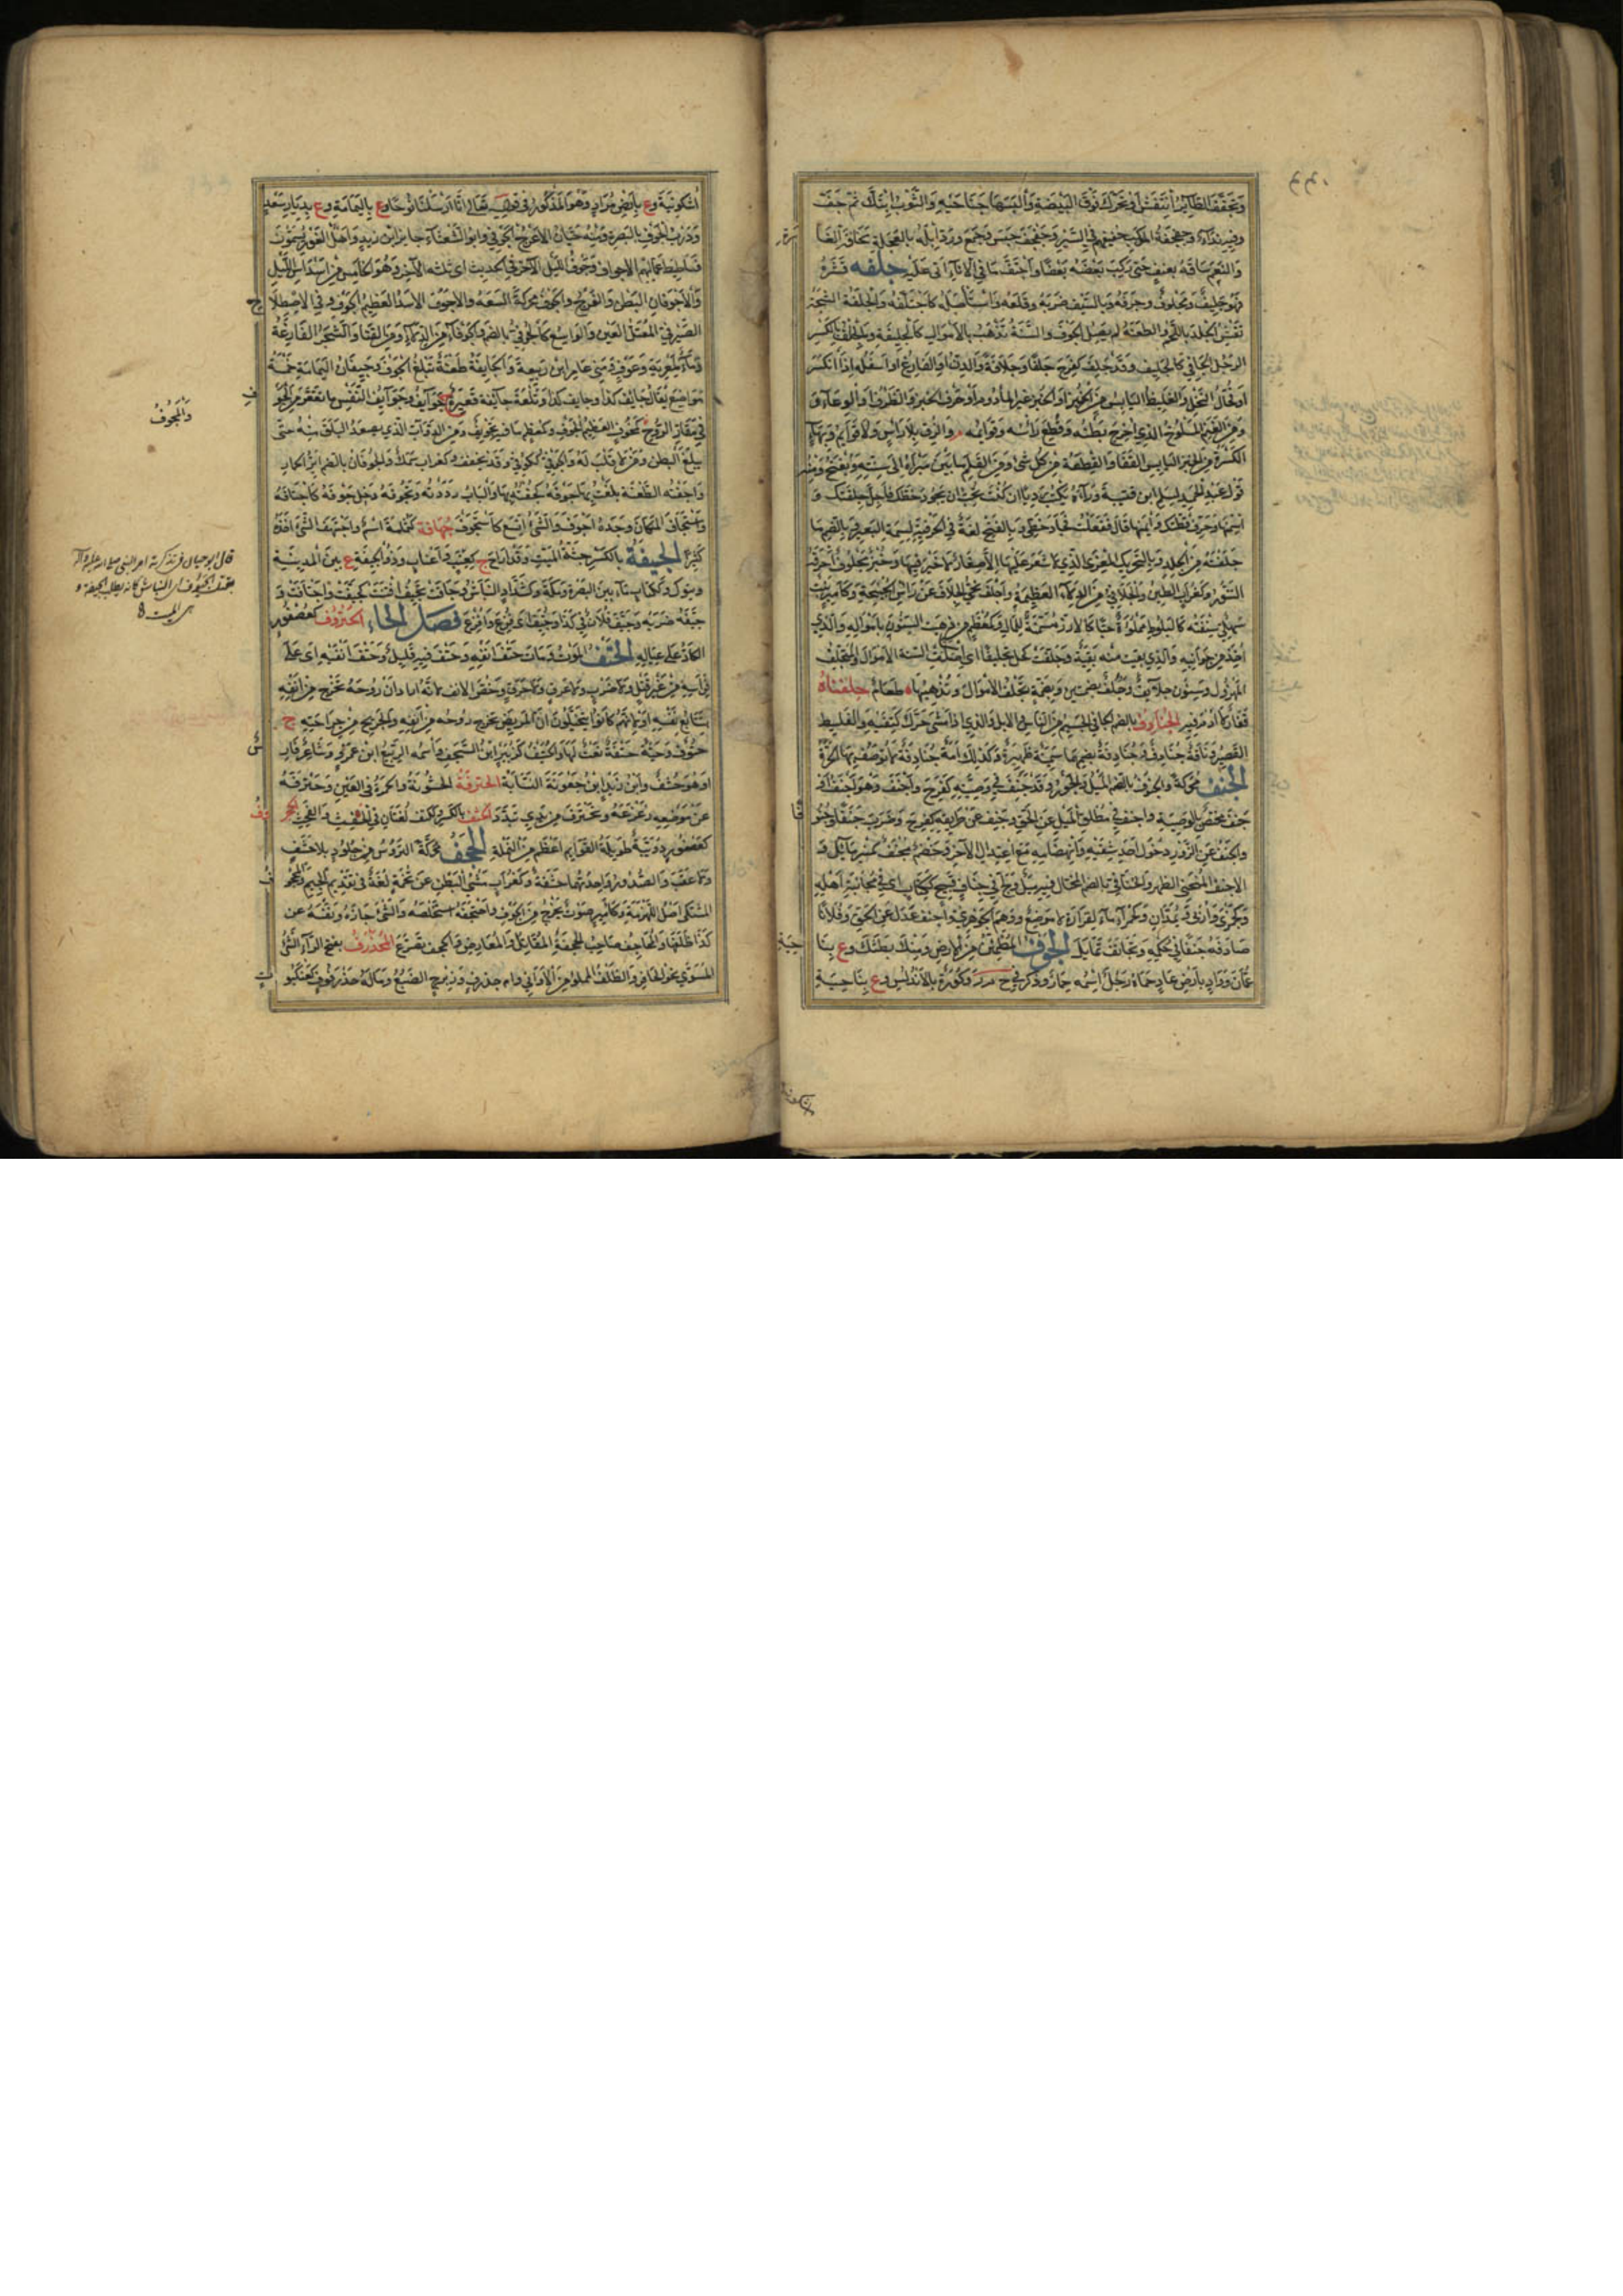 وتجفجف الطائر انتفش او تحرك فوق البيضة والبسها جناحيه والثوب ابتل ثم جف
وفيه نداءة وجفجفة الموكب حفيفهم في السير وجفجف حبس وجمع ورد ابله بالعجلة مخافة الغارة
والنعم ساقه بعنف حتى ركب بعضه بعضا واجتف ما في الاناء اتى عليه جلفه قشره
فهو جليف ومجلوف وجرفه وبالسيف ضربه وقلعه واستاصله كاجتلفه والجلفة الشجة
تقشر الجلد باللحم والطعنة لم يصل الجوف والسنة تذهب بالاموال كالجليفة والجلف بالكسر
الرجل الجافي كالجليف وقد جلف كفرح جلفا وجلافة والدن او الفارغ او اسفله اذا انكسر
او فحال النخل والغليظ اليابس من الخبز او الخبز غير المأدوم او حرف الخبز والظرف والوعاء و
ومن الغنم المسلوخ الذي اخرج بطنه وقطع رأسه وقوائمه والزق بلا راس ولا قوائم
الكسرة من الخبز اليابس القفار والقطعة من كل شئ ومن القلم ما بين مبراه الى سنته ويفتح ومنه
قول عبد الحميد لسلم ابن قتيبة ورآه يكتب رديا ان كنت تحب ان تجود خطك فاطل جلفتك و
اسمنها وحرف قطتك وايمنها قال ففعلت فجاد خطي وبالفتح لغة في الجرفة لسمة البعير وبالضم ما
جلفته من الجلد وبالتحريك المعزى الذي لا شعر عليها الا صغار لا خير فيها وخبز مجلوف احرقه
التنور وكغراب الطين والجلافي من الدلاء العظيمة واجلف نحى الجلاف عن راس الجنبخة وكامير نبت
سهلي سنفته كالبلوط مملوءة حبا كالارزن مسمنة للمال وكمعظم من ذهبت السنون بامواله والذي
اخذ من جوانبه والذي بقيت منه بقية وجلفت كحل تجليفا اي استاصلت السنة الاموال والمتجلف
المهزول وسنون جلائف وجلف بضمتين وبضمة تجلف الاموال وتذهبها طعام جلنفاة
قفار لا ادم فيه الجنادف بالضم الجافي الجسيم من الناس والابل والذي اذا مشى حرك كتفيه والغليظ
القصير وناقة جنادف وجنادفة بضمها سمينة ظهيرة وكذلك امة جنادفة لا توصف بها الحرة
الجنف محركة والجنوف بالضم الميل والجور وقد جنف في وصيته كفرح واجنف وهو اجنف او
جنف مختص بالوصية واجنف في مطلق الميل عن الحق وجنف عن طريقه كفرح وضرب جنفا وجنوفا
والجنف عن الزور دخول احد شقيه وانهضامه مع اعتدال الآخر وخصم مجنف كمنبر مائل و
الاجنف المنحني الظهر والجنافي بالضم المختال فيه ميل وجاء في جناف قبيح ككتاب اي في مجانبة اهله
وكجمزى واربى ويمدان وكحمراء ماء لفزارة لا موضع ووهم الجوهري واجنف عدل عن الحق وفلانا
صادفه جنفا في حكمه وتجانف تمايل الجوف المطمئن من الارض ومنك بطنك وع بنا
عمان وواد بارض عاد حماه رجل اسمه حمار وذكر في ح م ر وكورة بالاندلس وع بناحية
اكشونية وع بارض مراد وهو المذكور في قوله تعالى انا ارسلنا نوحا وع باليمامة وع بديار سعد
ودرب الجوف بالبصرة ومنه حيان الاعرج الجوفي وابو الشعثاء جابر ابن زيد واهل الغور يسمون
فساطيط عمالهم الاجواف وجوف الليل الآخر في الحديث اي ثلثه الآخر وهو الخامس من اسداس الليل
والاجوفان البطن والفرج والجوف محركة السعة والاجوف الاسد العظيم الجوف وفي الاصطلاح
الصرفي المعتل العين والواسع كالجوفي بالضم والجوفاء من الدلاء ومن القنا والشجر الفارغة
وماء لمعوية وعوف ابني عامر ابن ربيعة والجائفة طعنة تبلغ الجوف وجيفان اليمامة خمسة
مواضع يقال جائف كذا وجائف كذا وتلعة جائفة قعيرة ج جوائف وجوائف النفس ما تقعر من الجوف
في مقار الروح كمخوف العظيم الجوف وكمعظم ما فيه تجويف ومن الدواب الذي يصعد البلق منه حتى
يبلغ البطن ومن لا قلب له والجوفي الكوفي وقد يخفف وكغراب سمك والجوفان بالضم اير الحمار
واجفته الطعنة بلغت بها جوفه كجفته بها والباب رددته وتجوفه دخل جوفه كاجتافه
واستجاف المكان وجده اجوف والشئ اتسع كاستجوف جهافة كثمامة اسم واجتهف الشئ اخذه
كثيرا الجيفة بالكسر جثة الميت وقد اراح ج كعنب واعناب وذو الجيفة ع بين المدينة
وتبوك وككتاب ماء بين البصرة ومكة وكشداد النباش وجافت تجيف انتنت كجيفت واجتافت و
جيفه ضربه وجيف فلان في كذا وجيف اي فزع وافزع فصل الحاء الحتروف كعصفور
الكاد على عياله الحتف الموت ومات حتف انفه وحتف فيه قليل وحتف انفيه اي على
فراشه من غير قتل ولا ضرب ولا غرق ولا حرق وخص الانف لانه اراد ان روحه تخرج من انفه
بتتابع نفسه او لانهم كانوا يتخيلون ان المريض تخرج روحه من انفه والجريح من جراحته ج
حتوف وحية حتفة نعت لها والحتيف كزبير ابن السجف واسمه الربيع ابن عمرو وشاعر فارس
او هو حنتف وابن زيد ابن جعونة النسابة الحترفة الخشونة والحمرة في العين وحترفه
عن موضعه زعزعه وتحترف من يدي تبدد الحثف بالكسر وككتف لغتان في الحفث والفحث الحجر
كعصفور دويبة طويلة القوائم اعظم من النملة الحجف محركة التروس من جلود بلا خشب
ولا عقب والصدور واحدتهما حجفة وكغراب مشي البطن عن تخمة لغة في تقديم الجيم والمحجوف
المشتكي اصل اللهزمة وكامير صوت يخرج من الجوف واحتجفه استخلصه والشئ حازه ونفسه عن
كذا ظلفها والمحاجف صاحب الحجفة المقاتل والمعارض وانحجف تضرع المحذرف بفتح الراء الشئ
المسوى نحو الحافر والظلف المملوء من الاواني وام حذرف كزبرج الضبع وماله حذرفوت كعنكبو
والمجوف
قال ابو حيان في تذكرته امر النبي صلى الله عليه وآله
بقتل الجيوف اي النباش كانه يطلب الجيفة و
هي الميت